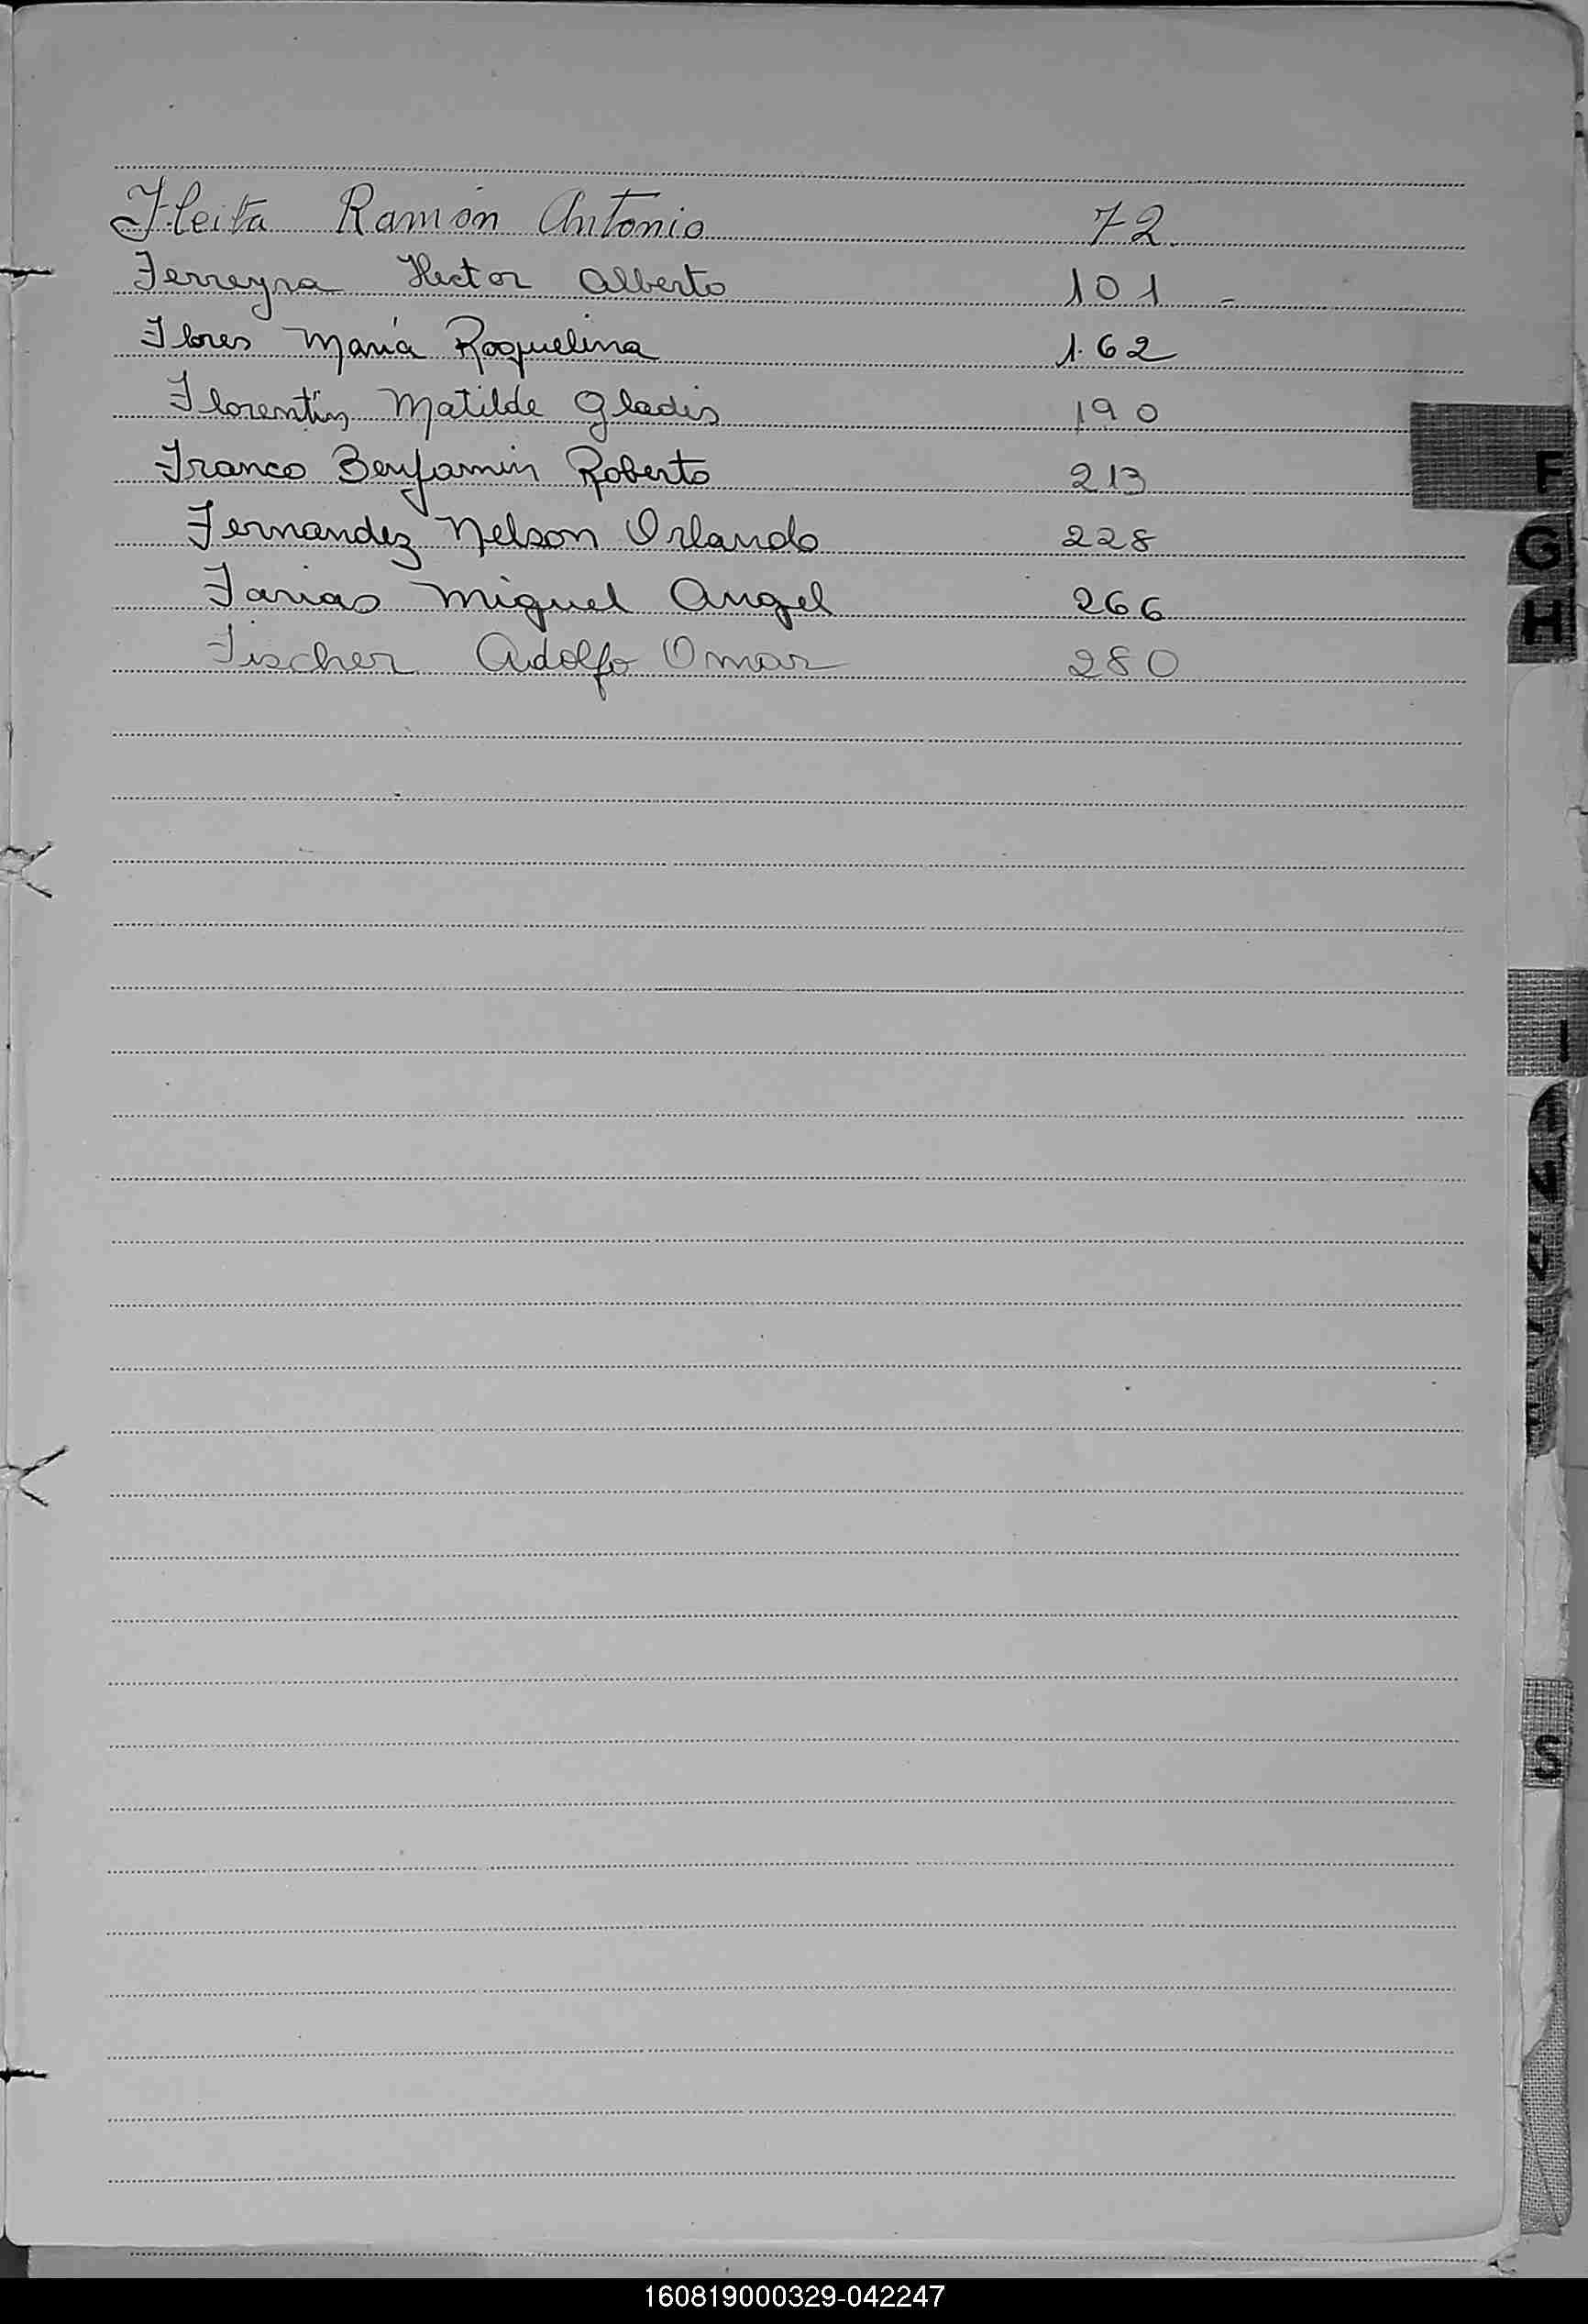 Fleita Ramón Antonio 72.
Ferreyra Hector Alberto 101 -
Flores María Roquelina 162
Florentín Matilde Gladis 190
Franco Benjamin Roberto 213
Fernandez Nelson Orlando 228
Farias Miguel Angel 266
Fischer Adolfo Omar 280
F
G
H
I
S
160819000329-042247